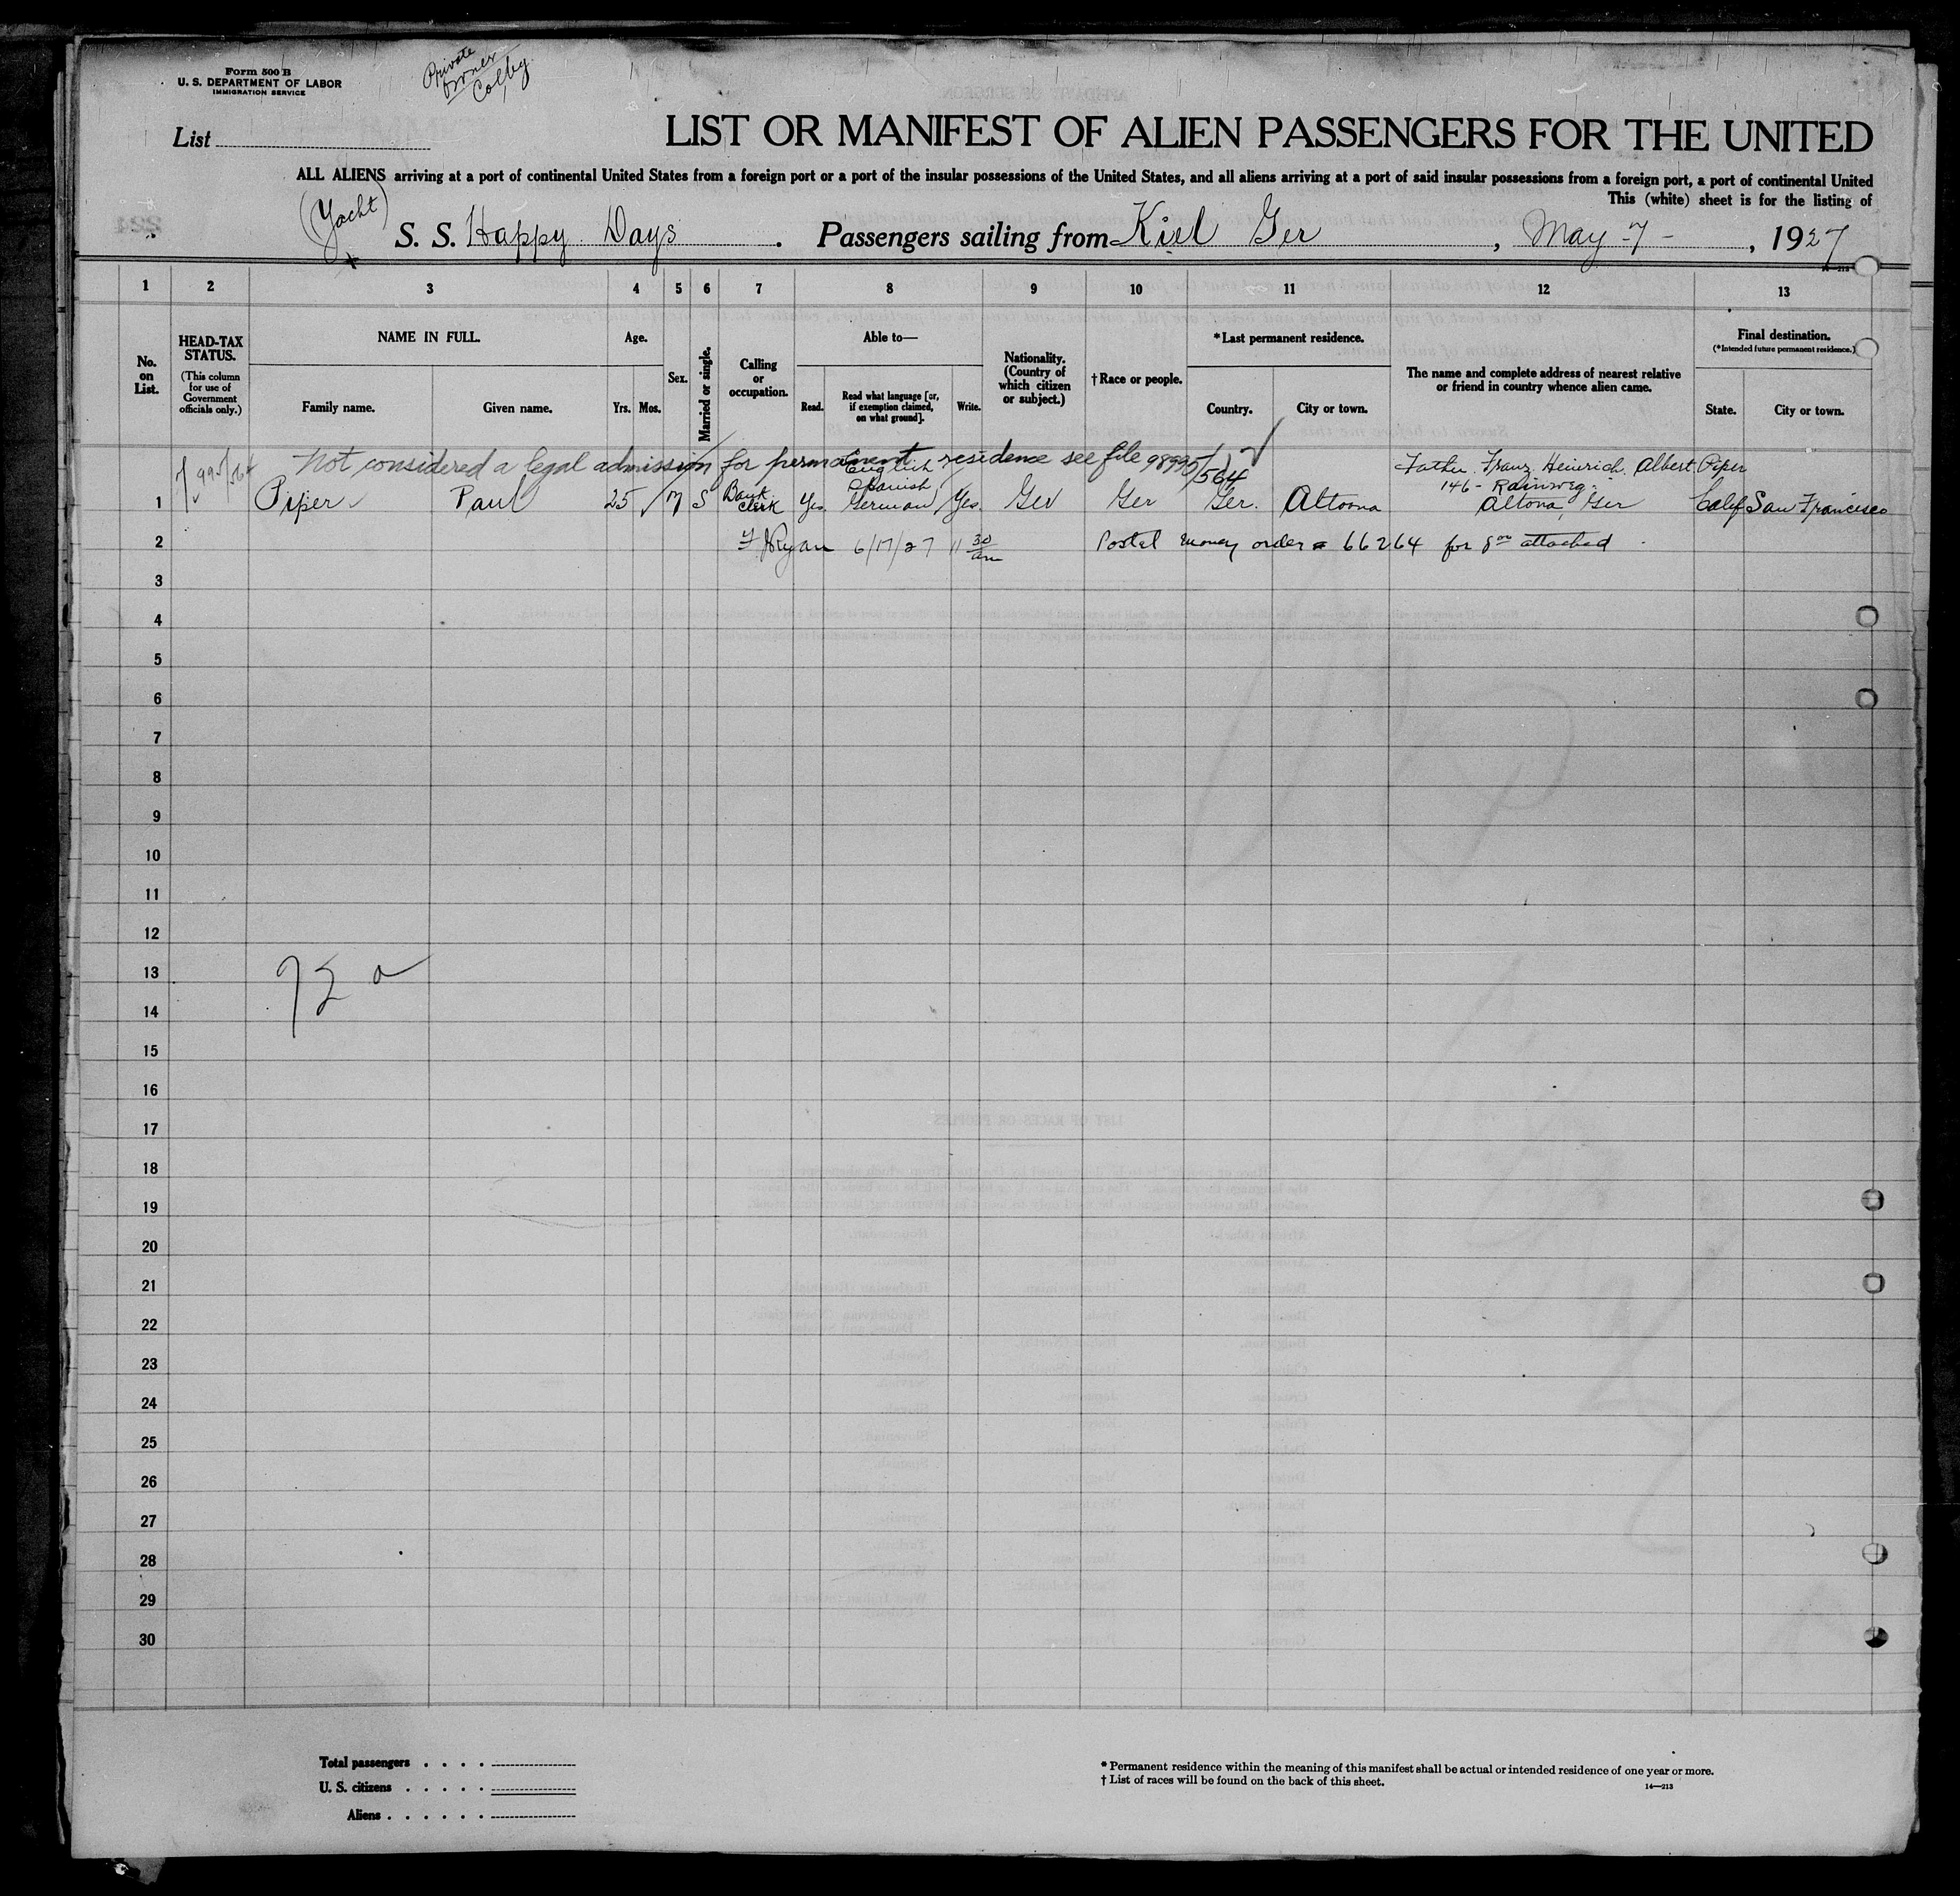 Form 500 B
U. S. DEPARTMENT OF LABOR
IMMIGRATION SERVICE
Private
owner
Colby
List
LIST OR MANIFEST OF ALIEN PASSENGERS FOR THE UNITED
ALL ALIENS arriving at a port of continental United States from a foreign port or a port of the insular possessions of the United States, and all aliens arriving at a port of said insular possessions from a foreign port, a port of continental United
This (white) sheet is for the listing of
(Yacht)
S. S. Happy Days . Passengers sailing from Kiel Ger , May -7- , 1927
14—213
1 2 3 4 5 6 7 8 9 10 11 12 13
No. on List.
HEAD-TAX STATUS.
(This column for use of Government officials only.)
NAME IN FULL.
Family name. Given name.
Age.
Yrs. Mos.
Sex.
Married or single.
Calling or occupation.
Able to—
Read. Read what language [or, if exemption claimed, on what ground]. Write.
Nationality. (Country of which citizen or subject.)
† Race or people.
* Last permanent residence.
Country. City or town.
The name and complete address of nearest relative or friend in country whence alien came.
Final destination.
(*Intended future permanent residence.)
State. City or town.
Not considered a legal admission for permanent residence see file 98995/564
Father Franz Heinrich Albert Piper
English
Spanish
146 - Rainweg -
1 Piper Paul 25 M S Bank Clerk Yes German Yes Ger Ger Ger. Altoona Altona Ger Calif San Francisco
2 Ryan 6/17/27 11 30 am Postal money order 66264 for 8 00 attached
3
4
5
6
7
8
9
10
11
12
13
14
15
16
17
18
19
20
21
22
23
24
25
26
27
28
29
30
Total passengers . . . .
U. S. citizens . . . . .
Aliens . . . . . .
* Permanent residence within the meaning of this manifest shall be actual or intended residence of one year or more.
† List of races will be found on the back of this sheet.
14—213